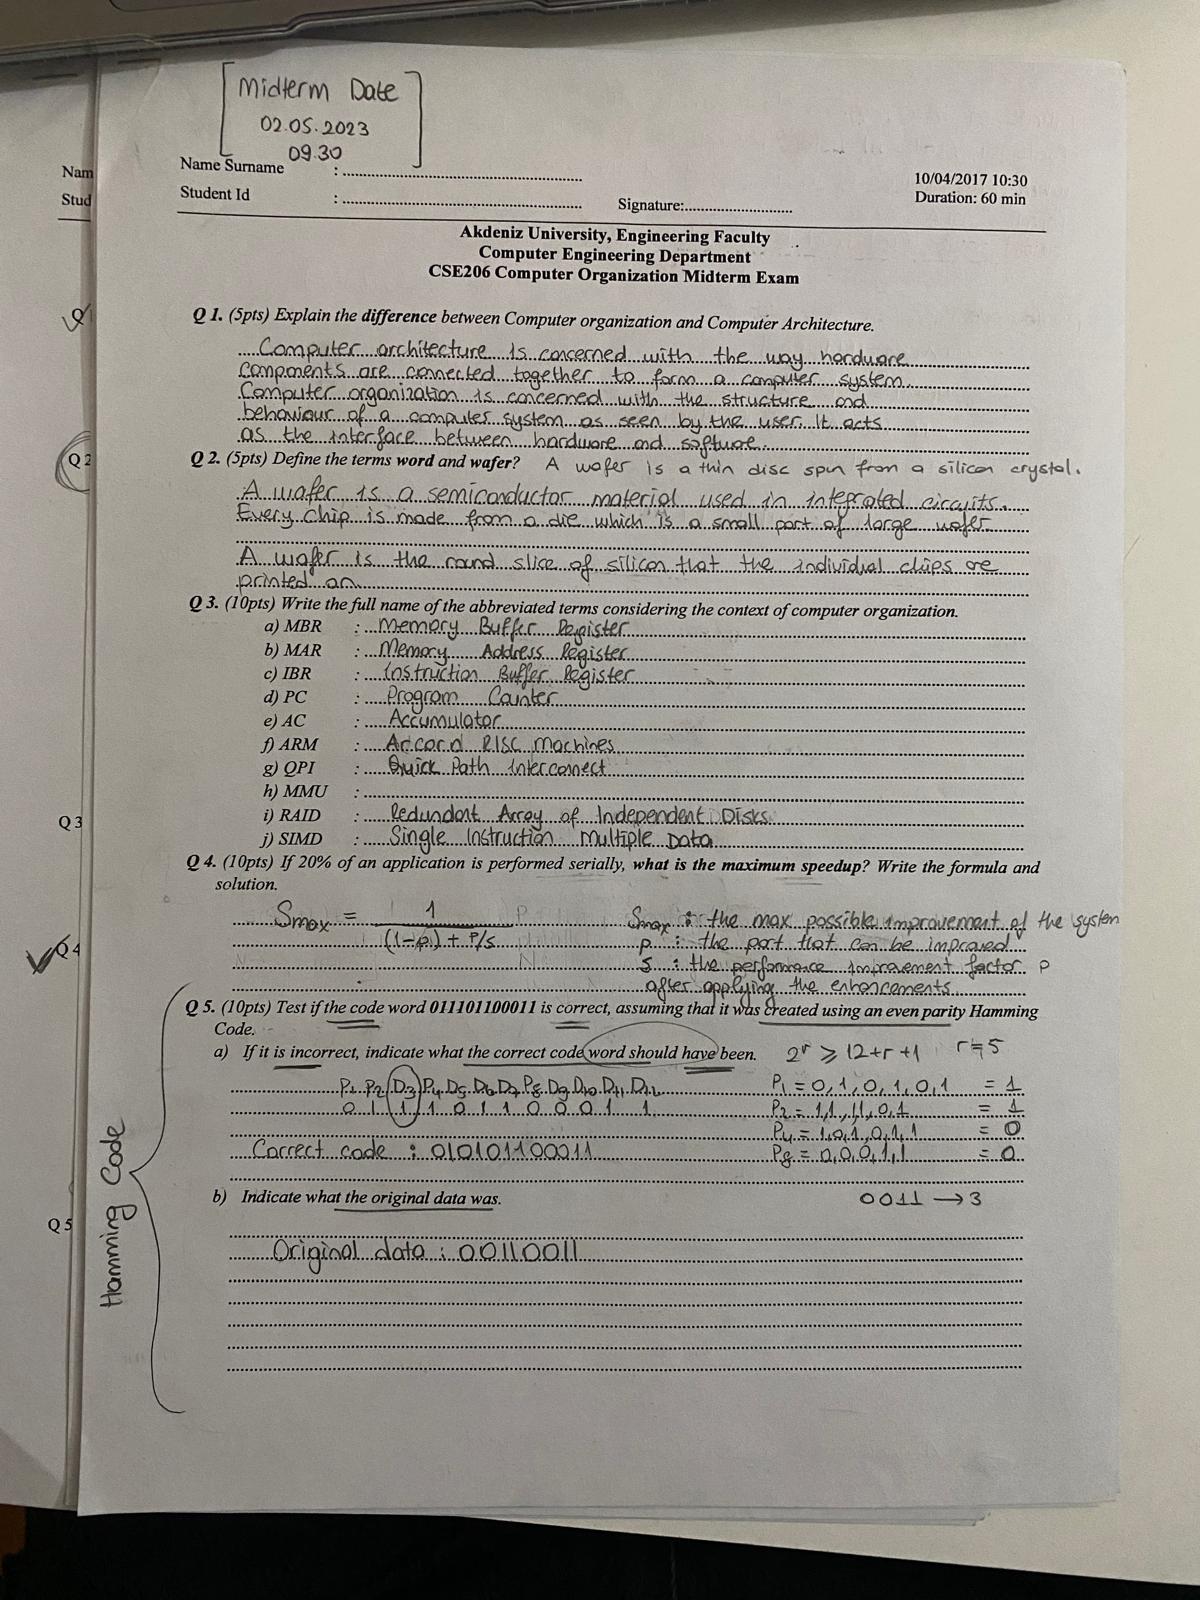 [Midterm Date
02.05.2023
09.30]
Nam
Stud
Name Surname : ..............................
Student Id : ..............................
Signature:..............................
10/04/2017 10:30
Duration: 60 min
Akdeniz University, Engineering Faculty
Computer Engineering Department
CSE206 Computer Organization Midterm Exam
Q 1. (5pts) Explain the difference between Computer organization and Computer Architecture.
Computer architecture is concerned with the way hardware
components are connected together to form a computer system.
Computer organization is concerned with the structure and
behaviour of a computer system as seen by the user. It acts
as the interface between hardware and software.
Q 2
Q 2. (5pts) Define the terms word and wafer? A wafer is a thin disc spun from a silicon crystal.
A wafer is a semiconductor material used in integrated circuits.
Every chip is made from a die which is a small part of large wafer
A wafer is the round slice of silicon that the individual chips are
printed on
Q 3. (10pts) Write the full name of the abbreviated terms considering the context of computer organization.
a) MBR : Memory Buffer Register
b) MAR : Memory Address Register
c) IBR : Instruction Buffer Register
d) PC : Program Counter
e) AC : Accumulator
f) ARM : Accord RISC Machines
g) QPI : Quick Path Interconnect
h) MMU :
i) RAID : Redundant Array of Independent Disks
j) SIMD : Single Instruction Multiple Data
Q 3
Q 4. (10pts) If 20% of an application is performed serially, what is the maximum speedup? Write the formula and
solution.
Smax = 1 / (1-p) + P/s
Smax : the max possible improvement of the system
p : the part that can be improved
s : the performance improvement factor p
after applying the enhancements
Q 4
Q 5. (10pts) Test if the code word 011101100011 is correct, assuming that it was created using an even parity Hamming
Code.
a) If it is incorrect, indicate what the correct code word should have been. 2^r ≥ 12+r+1 r=5
P1 P2 D3 P4 D5 D6 D7 P8 D9 D10 D11 D12
0 1 1 1 0 1 1 0 0 0 1 1
P1 = 0,1,0,1,0,1 = 1
P2 = 1,1,1,1,0,1 = 1
P4 = 1,0,1,0,1,1 = 0
P8 = 0,0,0,1,1 = 0
Correct code : 010101100011
b) Indicate what the original data was.
0011 → 3
Original data : 00110011
Hamming Code
Q 5